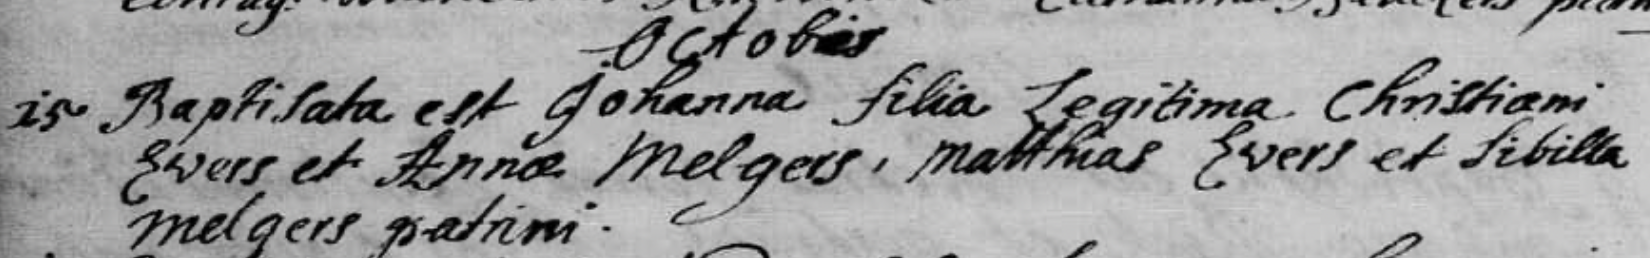 Octobris
15 Baptisata est Johanna filia Legitima Christiani
Evers et Annæ Melgers, Matthias Evers et Sibilla
Melgers patrini.